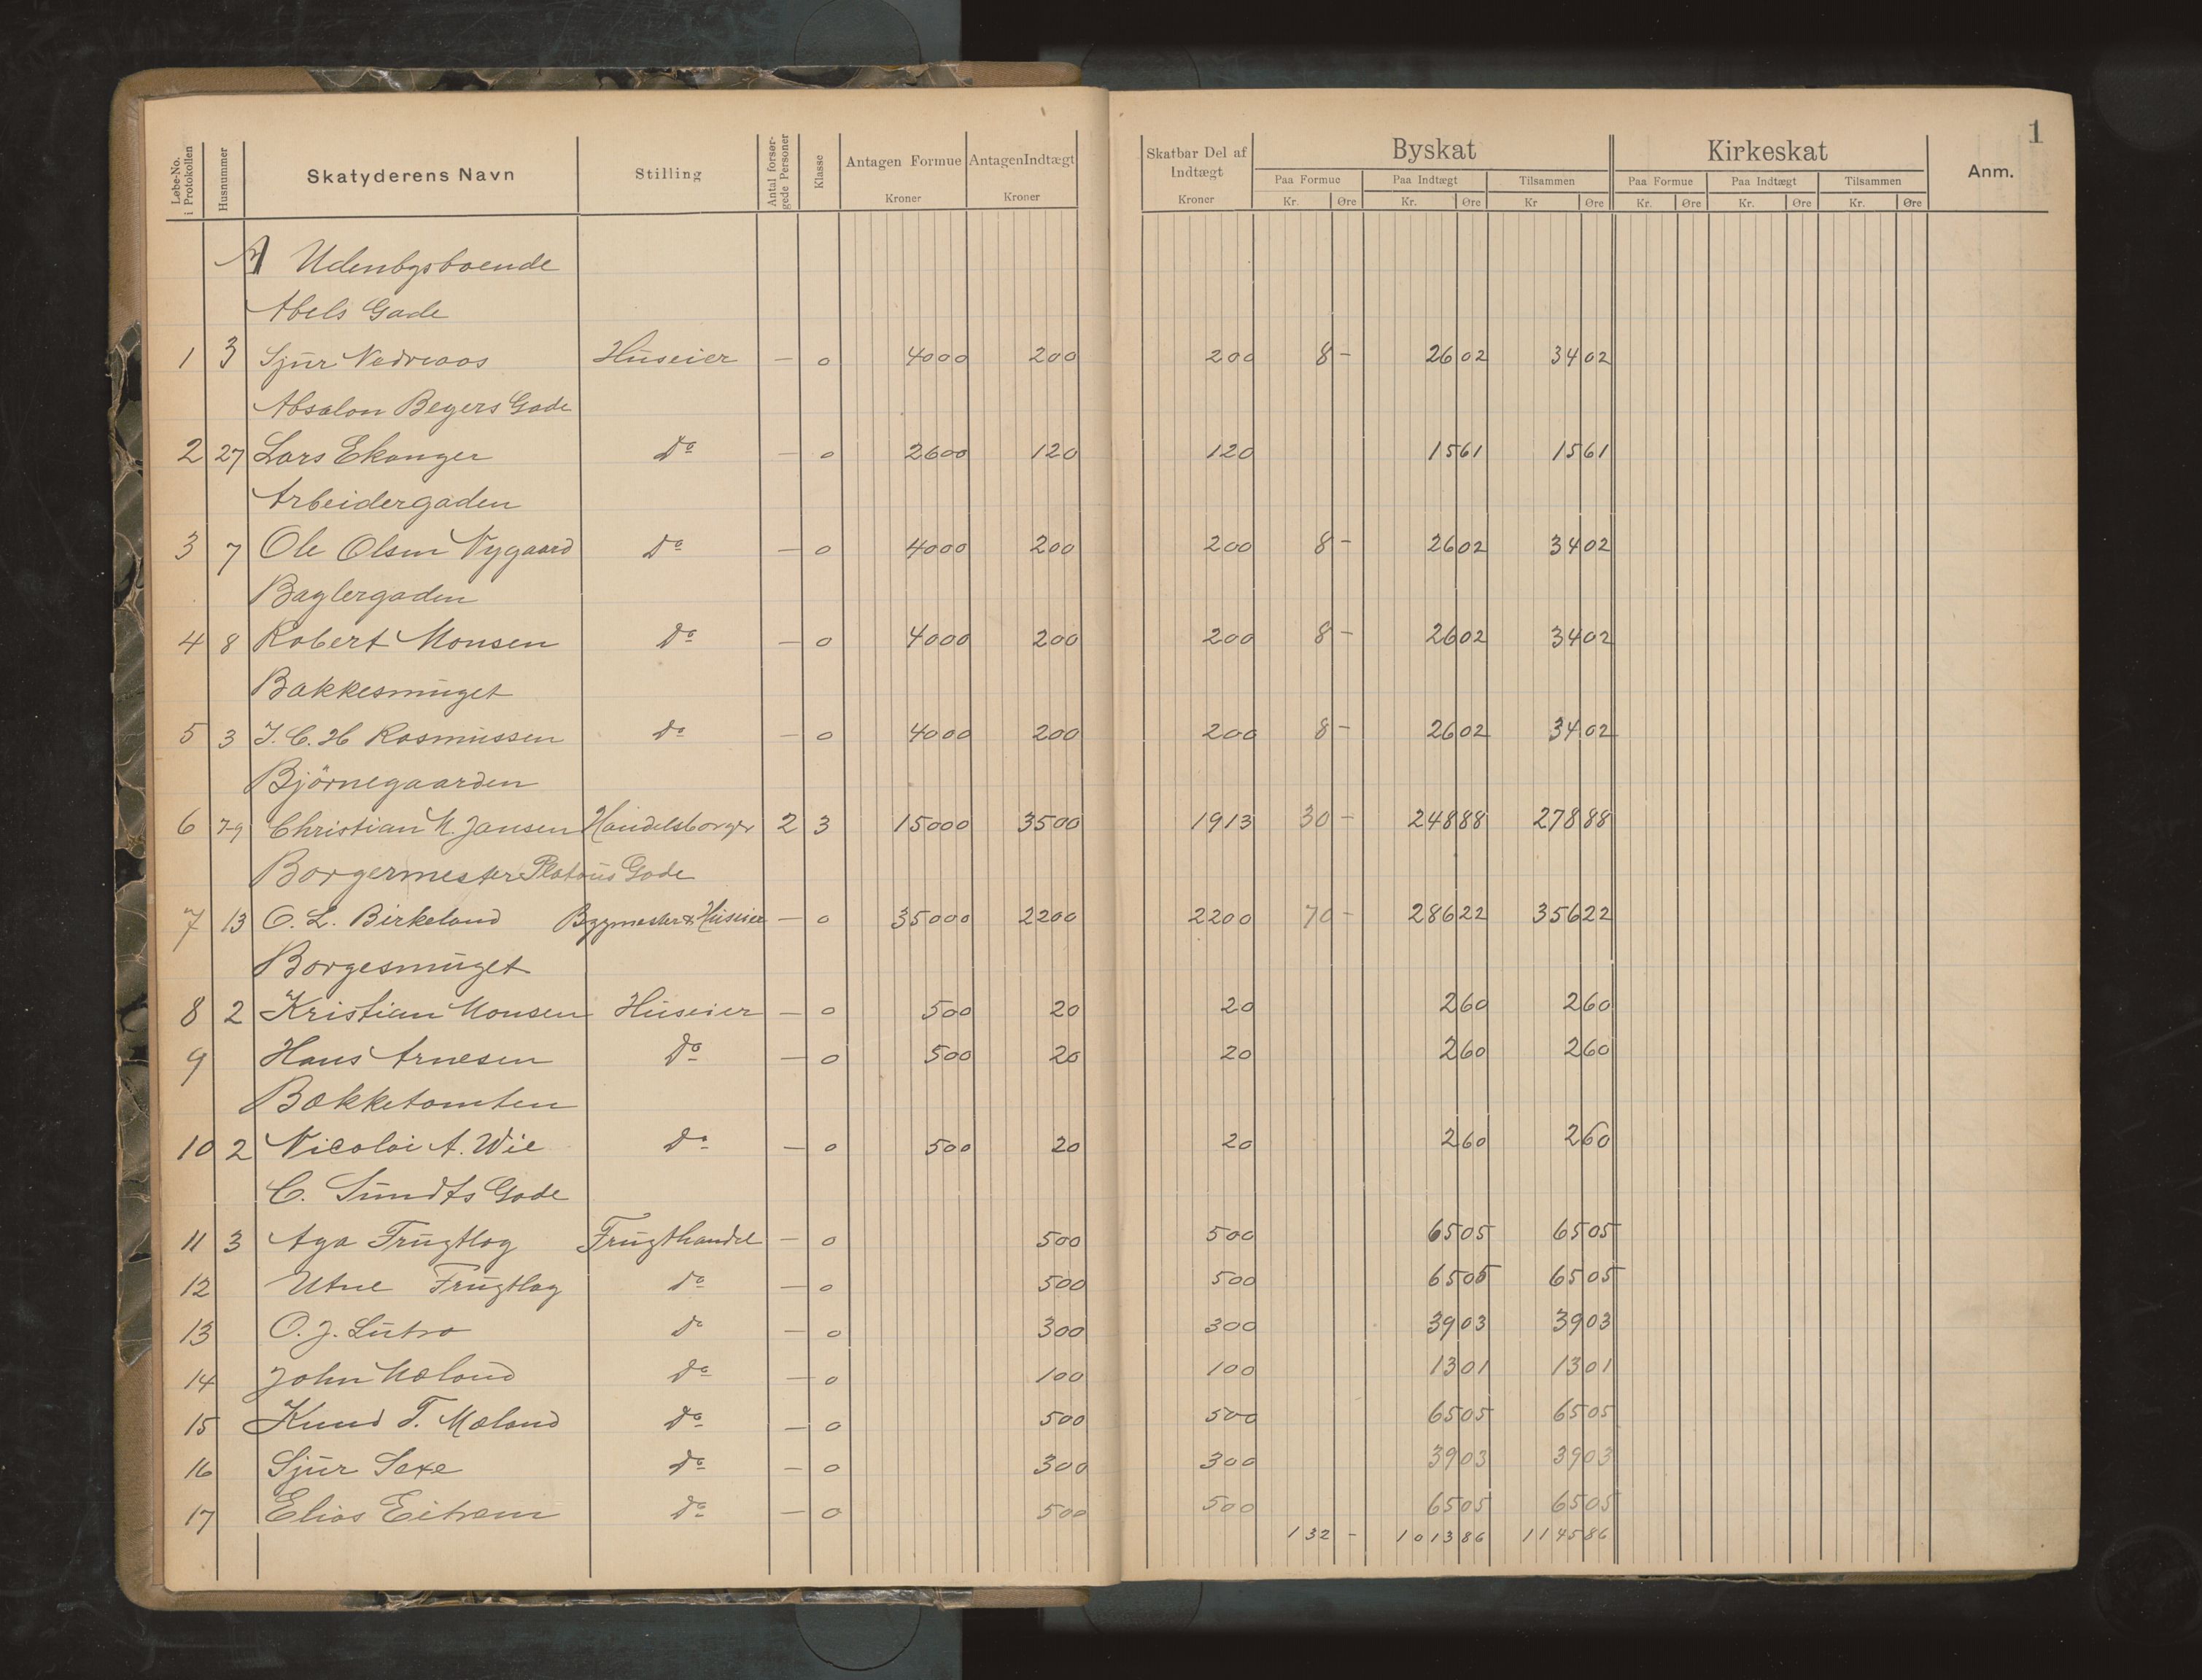 1
Løbe-No. i Protokollen Husnummer Skatyderens Navn Stilling Antal forsør-gede Personer Klasse Antagen Formue Antagen Indtægt Skatbar Del af Indtægt Byskat Kirkeskat Anm.
Paa Formue Paa Indtægt Tilsammen Paa Formue Paa Indtægt Tilsammen
Kroner Kroner Kroner Kr. Øre Kr. Øre Kr Øre Kr. Øre Kr. Øre Kr. Øre
A Udenbysboende
Abels Gade
1 3 Sjur Nedreaas Huseier — 0 4000 200 200 8 - 26 02 34 02
Absalon Beyers Gade
2 27 Lars Ekanger Do — 0 2600 120 120 15 61 15 61
Arbeidergaden
3 7 Ole Olsen Nygaard Do — 0 4000 200 200 8 - 26 02 34 02
Baglergaden
4 8 Robert Monsen Do — 0 4000 200 200 8 - 26 02 34 02
Bakkesmuget
5 3 J. C. H Rasmussen Do — 0 4000 200 200 8 - 26 02 34 02
Björnegaarden
6 7-9 Christian M. Jansen Handelsborger 2 3 15000 3500 1913 30 - 248 88 278 88
Borgermester Platous Gade
7 13 O. L. Birkeland Bygmester & Huseier — 0 35000 2200 2200 70 - 286 22 356 22
Borgesmuget
8 2 Kristian Monsen Huseier — 0 500 20 20 2 60 2 60
9 Hans Arnesen Do — 0 500 20 20 2 60 2 60
Bækketomten
10 2 Nicolai A. Wie Do — 0 500 20 20 2 60 2 60
C. Sundts Gade
11 3 Aga Frugtlag Frugthandel — 0 500 500 65 05 65 05
12 Utne Frugtlag Do — 0 500 500 65 05 65 05
13 O. J. Lutro Do — 0 300 300 39 03 39 03
14 John Mæland Do — 0 100 100 13 01 13 01
15 Knud T. Mæland Do — 0 500 500 65 05 65 05
16 Sjur Saxe Do — 0 300 300 39 03 39 03
17 Elias Eitrem Do — 0 500 500 65 05 65 05
132 - 1013 86 1145 86